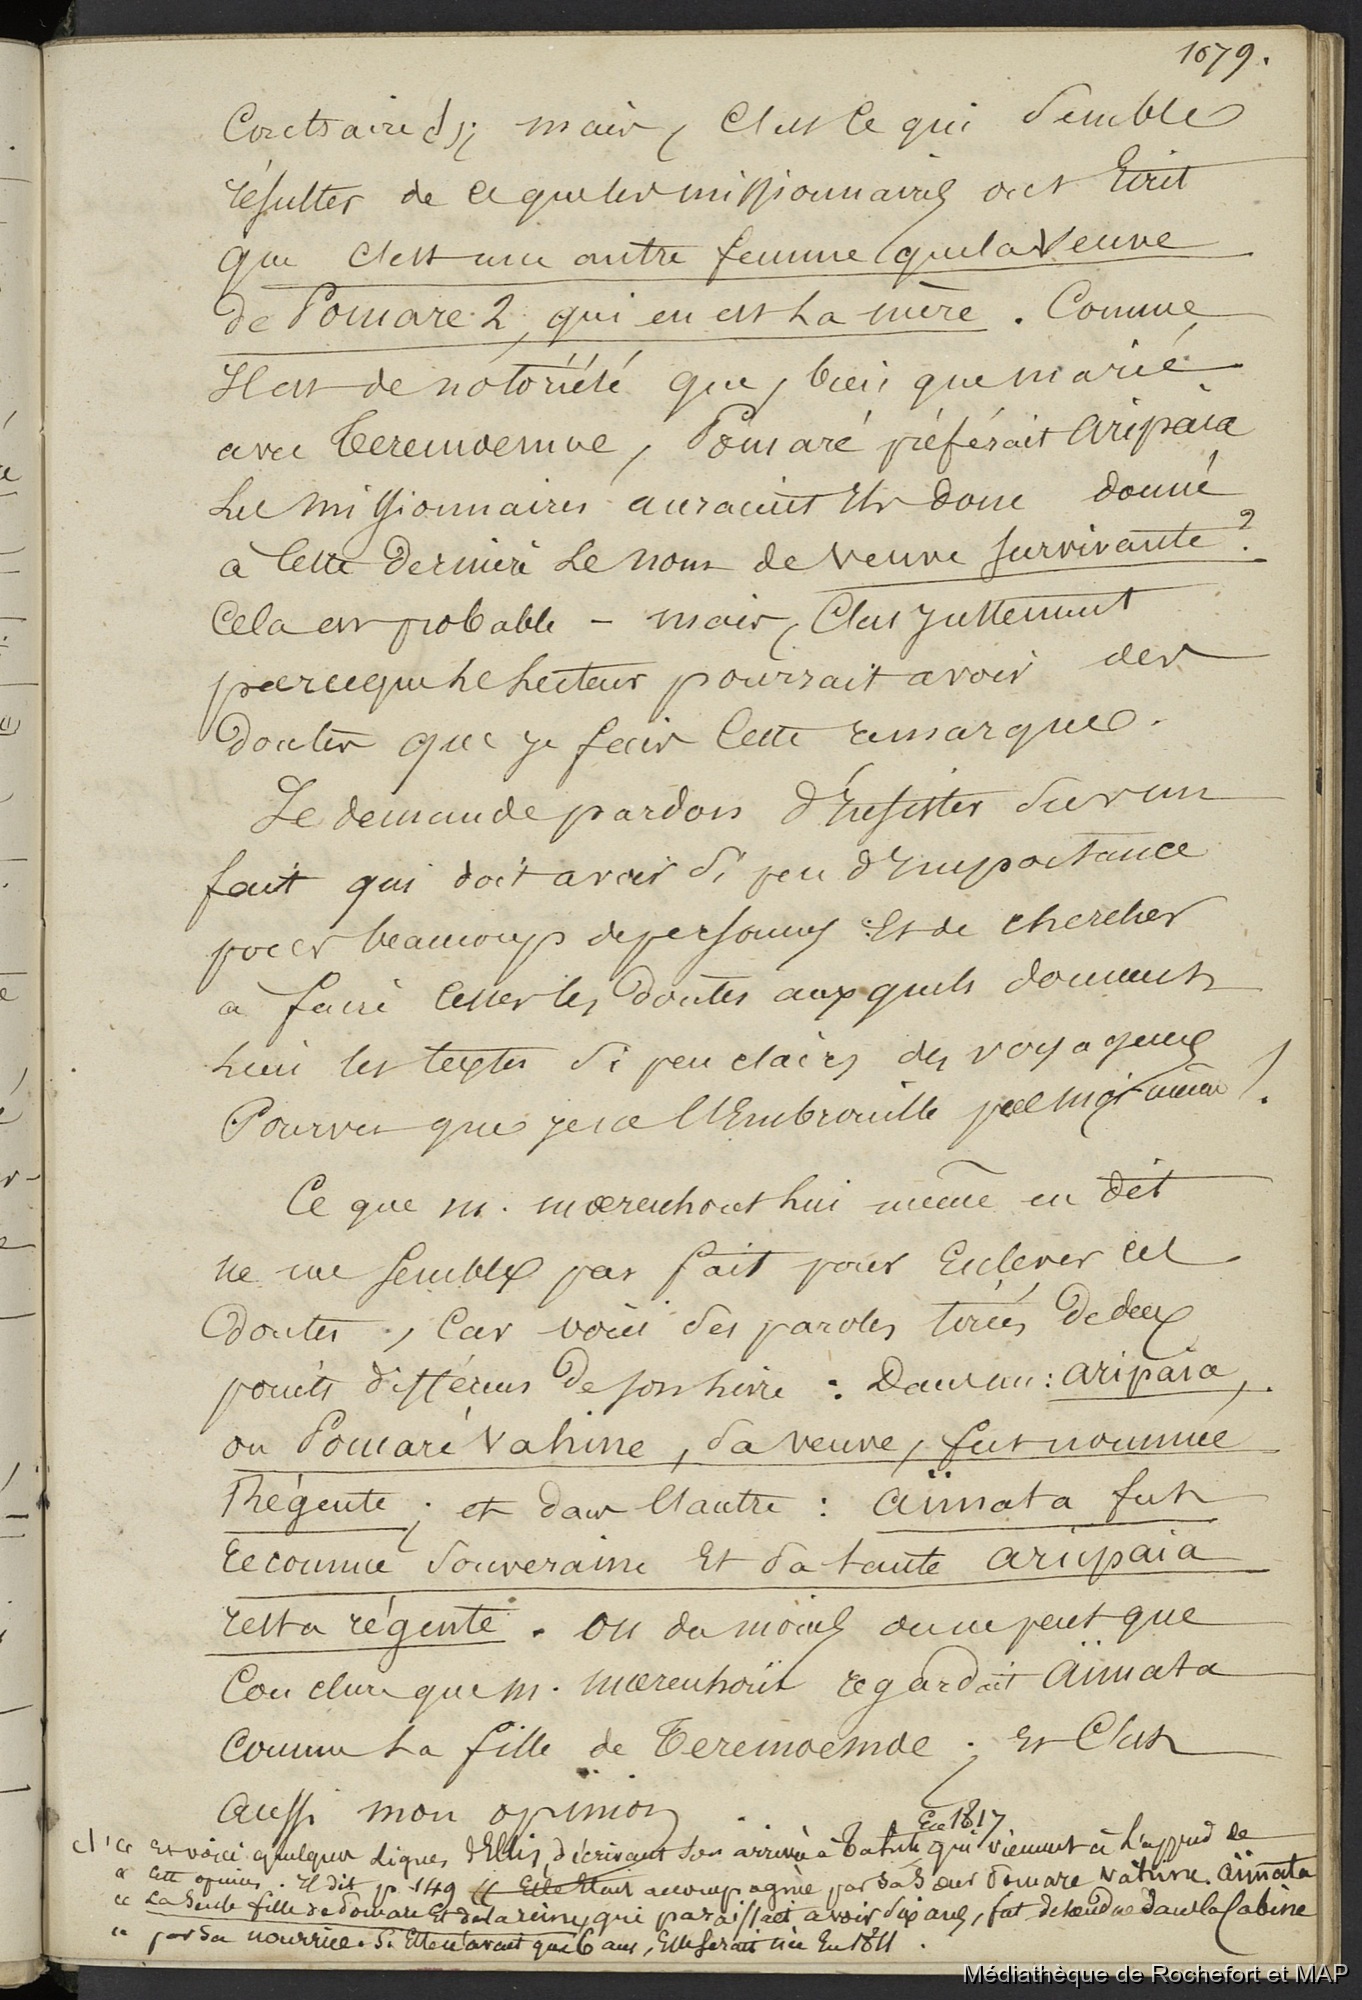 1679.
Contraire ; mais, C'est Ce qui Semble
résulter de ce que les missionnaires ont Ecrit
que C'est une autre femme que la Veuve
de Pomare 2, qui en est La mère. Comme
Il est de notoriété que, bien que marié
avec Teremoemoe, Pomaré préférait Aripaia
Les missionnaires auraient ils donc donné
à Cette Dernière Le nom de veuve survivante ?
Cela est probable - mais, C'est justement
parceque le Lecteur pourrait avoir des
Doutes que je fais Cette remarque.
Je demande pardon d'Insister Sur un
fait qui doit avoir Si peu d'Importance
pour beaucoup de personnes Et de chercher
à faire Cesser les Doutes auxquels donnent
lieu les textes Si peu clairs des voyageurs
Pourvu que je ne l'Embrouille pas moi-même !.
Ce que M. moerenhout lui même en dit
ne me Semble pas fait pour Enlever Ces
Doutes, Car voici Ses paroles tirées de deux
points différens De son livre : Dans un : Aripaia,
ou Pomaré Vahine, Sa veuve, fut nommée
Régente ; et dans l'autre : Aïmata fut
reconnue Souveraine Et Sa tante Aripaia
resta régente. On du moins on ne peut que
Conclure que M. Moerenhoüt regardait Aïmata
Comme La fille de Teremoemoe ; Et C'est
Aussi mon opinion.
Et voici quelques Lignes d'Ellis, décrivant Son arrivée à Taïti En 1817 qui viennent à L'appui de
Cette opinion. Il dit p 149 "Elle était accompagnée par Sa Soeur Pomare Vahine. Aïmata
" La Seule fille de Pomare Et de la reine, qui paraissait avoir Six ans, fut descendue dans la Cabine
" par Sa nourrice. Si Elle n'avait que 6 ans, Elle Serait née En 1811.
Médiathèque de Rochefort et MAP